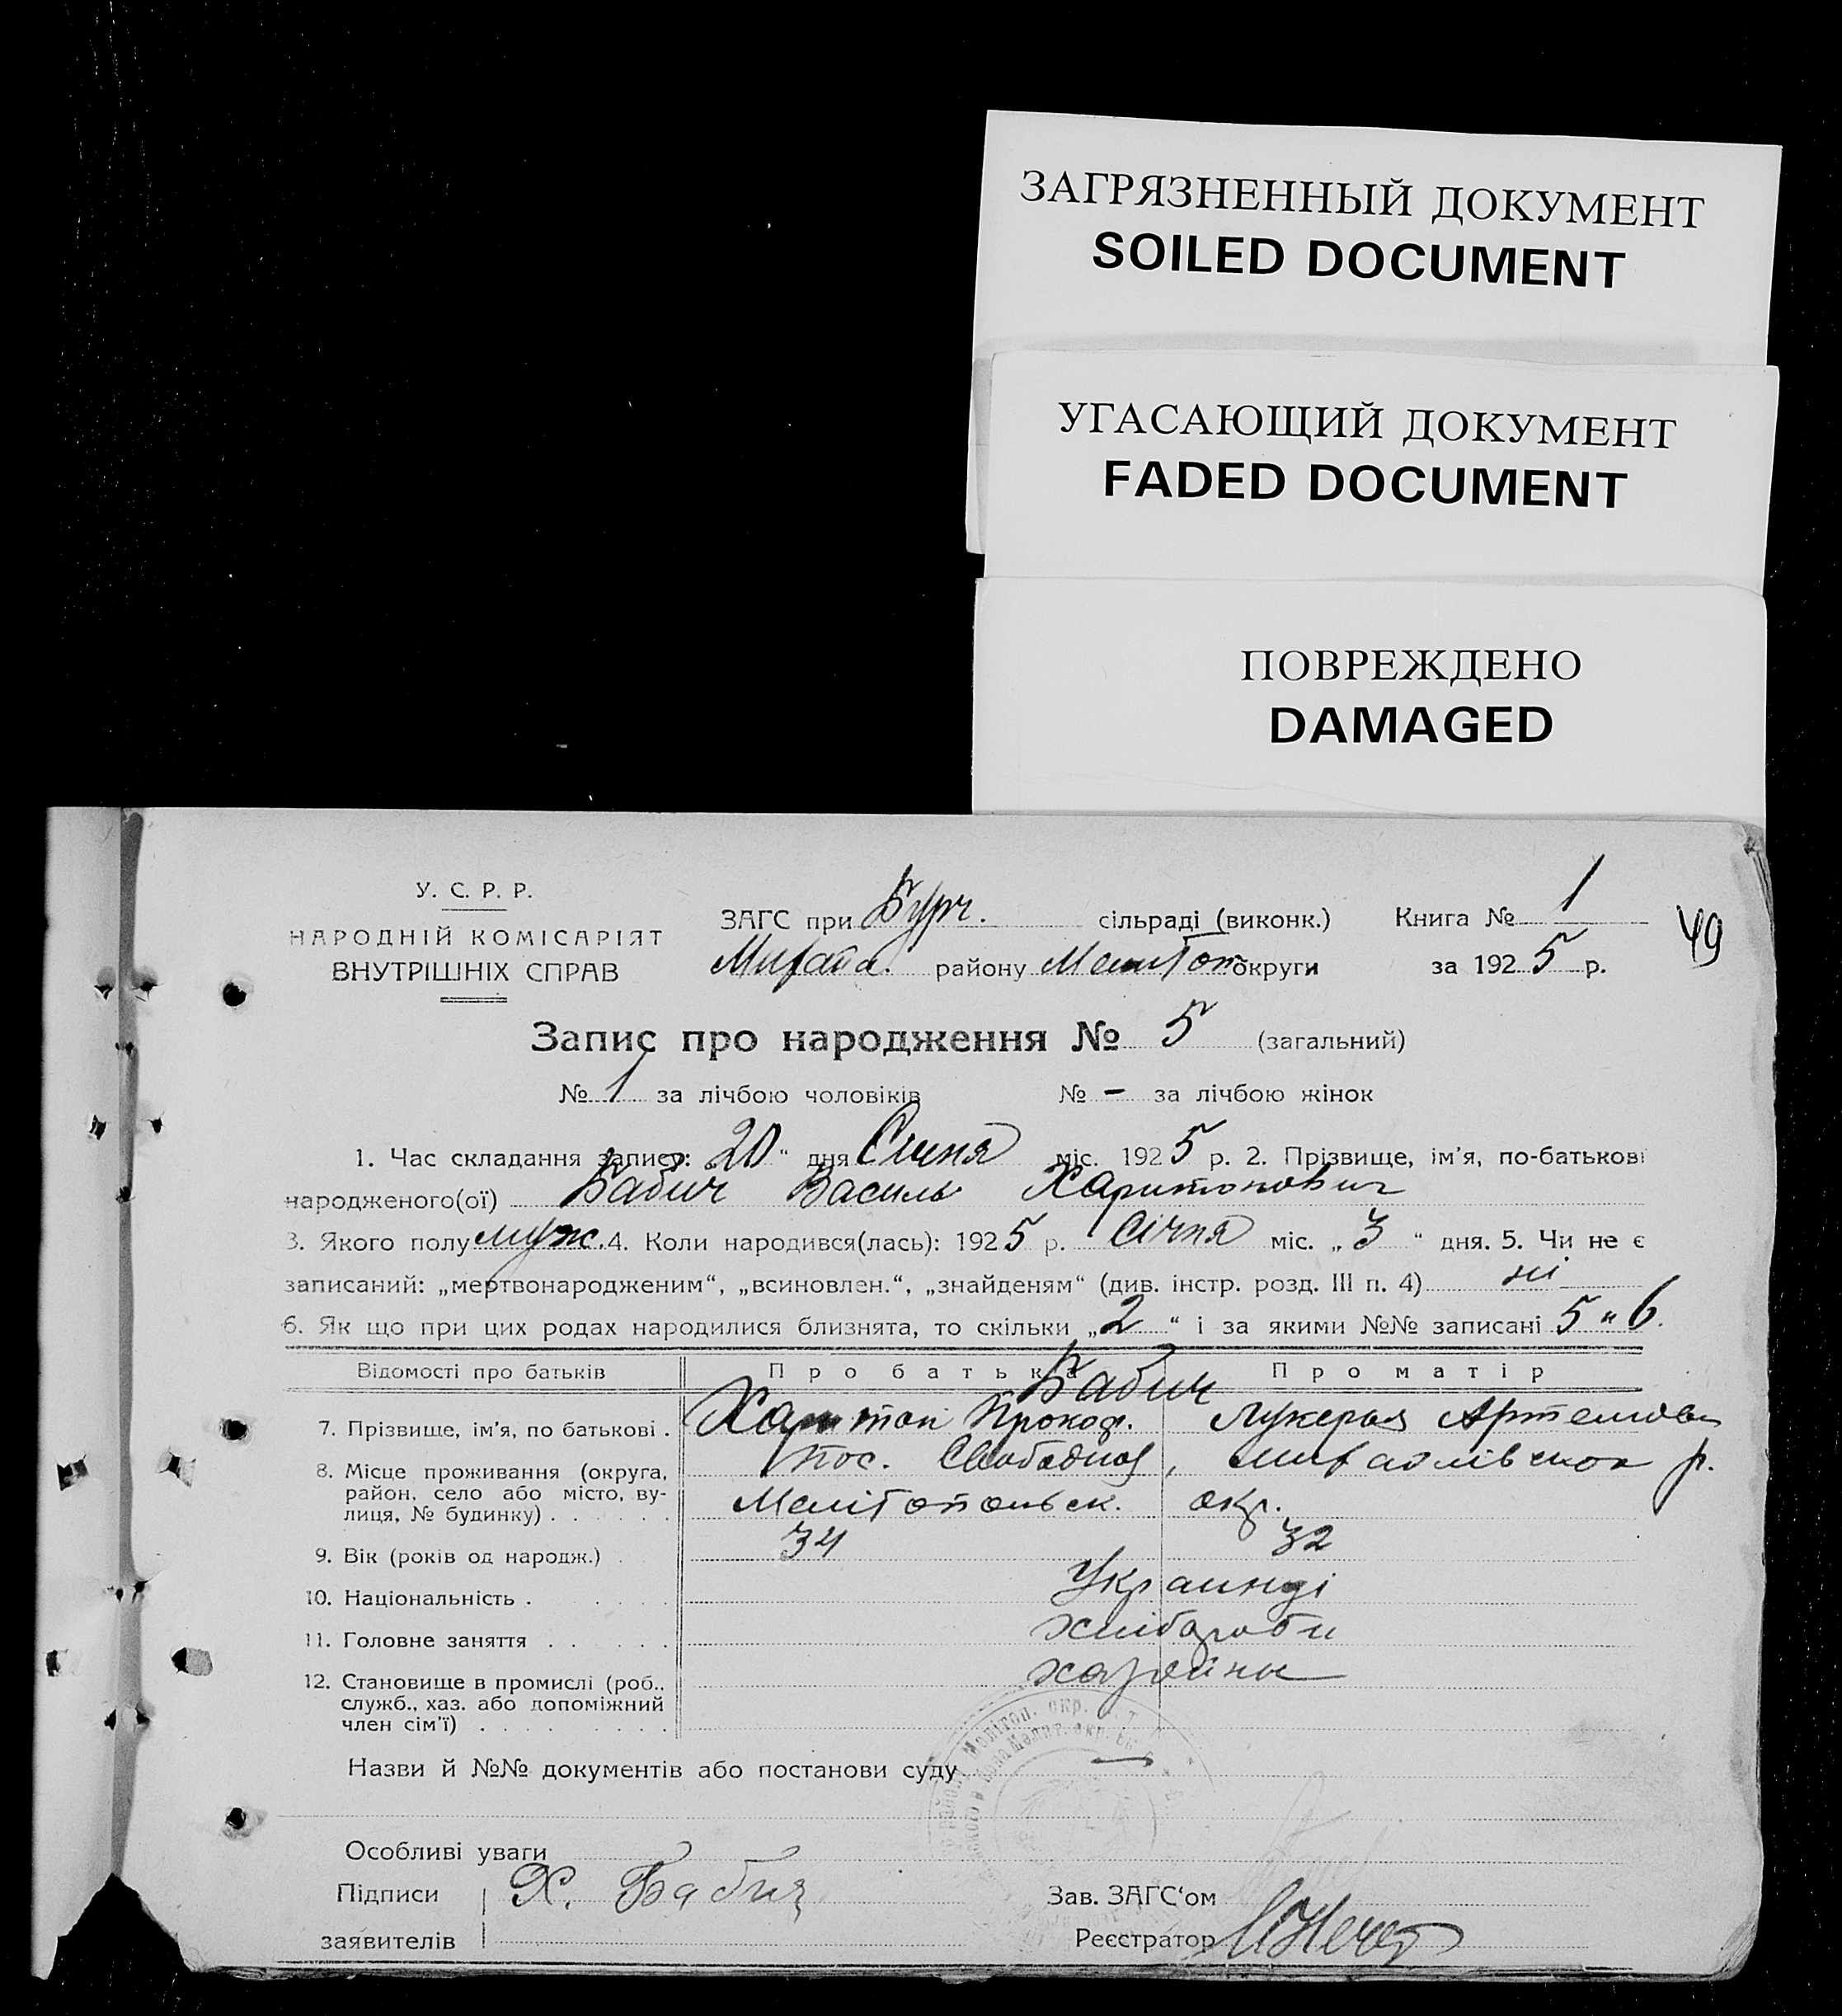 ЗАГРЯЗНЕННЫЙ ДОКУМЕНТ
SOILED DOCUMENT
УГАСАЮЩИЙ ДОКУМЕНТ
FADED DOCUMENT
ПОВРЕЖДЕНО
DAMAGED
У. С. Р. Р.
НАРОДНІЙ КОМІСАРІЯТ
ВНУТРІШНІХ СПРАВ
ЗАГС при Бурч. сільраді (виконк.) Книга № 1
району Меліtoп округи за 1925 р.
49
Запис про народження № 5 (загальний)
№ 1 за лічбою чоловіків № - за лічбою жінок
1. Час складання запису: „20“ дня Січня міс. 1925 р. 2. Прізвище, ім'я, по-батькові
народженого(ої) Бабич Василь Харитонович
3. Якого полу муж. 4. Коли народився(лась): 1925 р. Січня міс. „3“ дня. 5. Чи не є
записаний: „мертвонародженим“, „всиновлен.“, „знайденям“ (див. інстр. розд. III п. 4) ні
6. Як що при цих родах народилися близнята, то скільки „2“ і за якими №№ записані 5 и 6.
Відомості про батьків Про батька Про матір
Бабич
7. Прізвище, ім'я, по батькові . Харитон Прокоф. Лукерья Артемова
8. Місце проживання (округа, район, село або місто, вулиця, № будинку) . . . . . . пос. Свободная, р.
Мелітопольск. окр.
9. Вік (років од народж.) . 34 32
10. Національність . . . . . Украинці
11. Головне заняття . . . . . хлібороби
12. Становище в промислі (роб., служб., хаз. або допоміжний член сім'ї) . . . . . . . . хазяйни
Назви й №№ документів або постанови суду —
Особливі уваги
Підписи Х. Бабич Зав. ЗАГС‘ом
заявителів Реєстратор